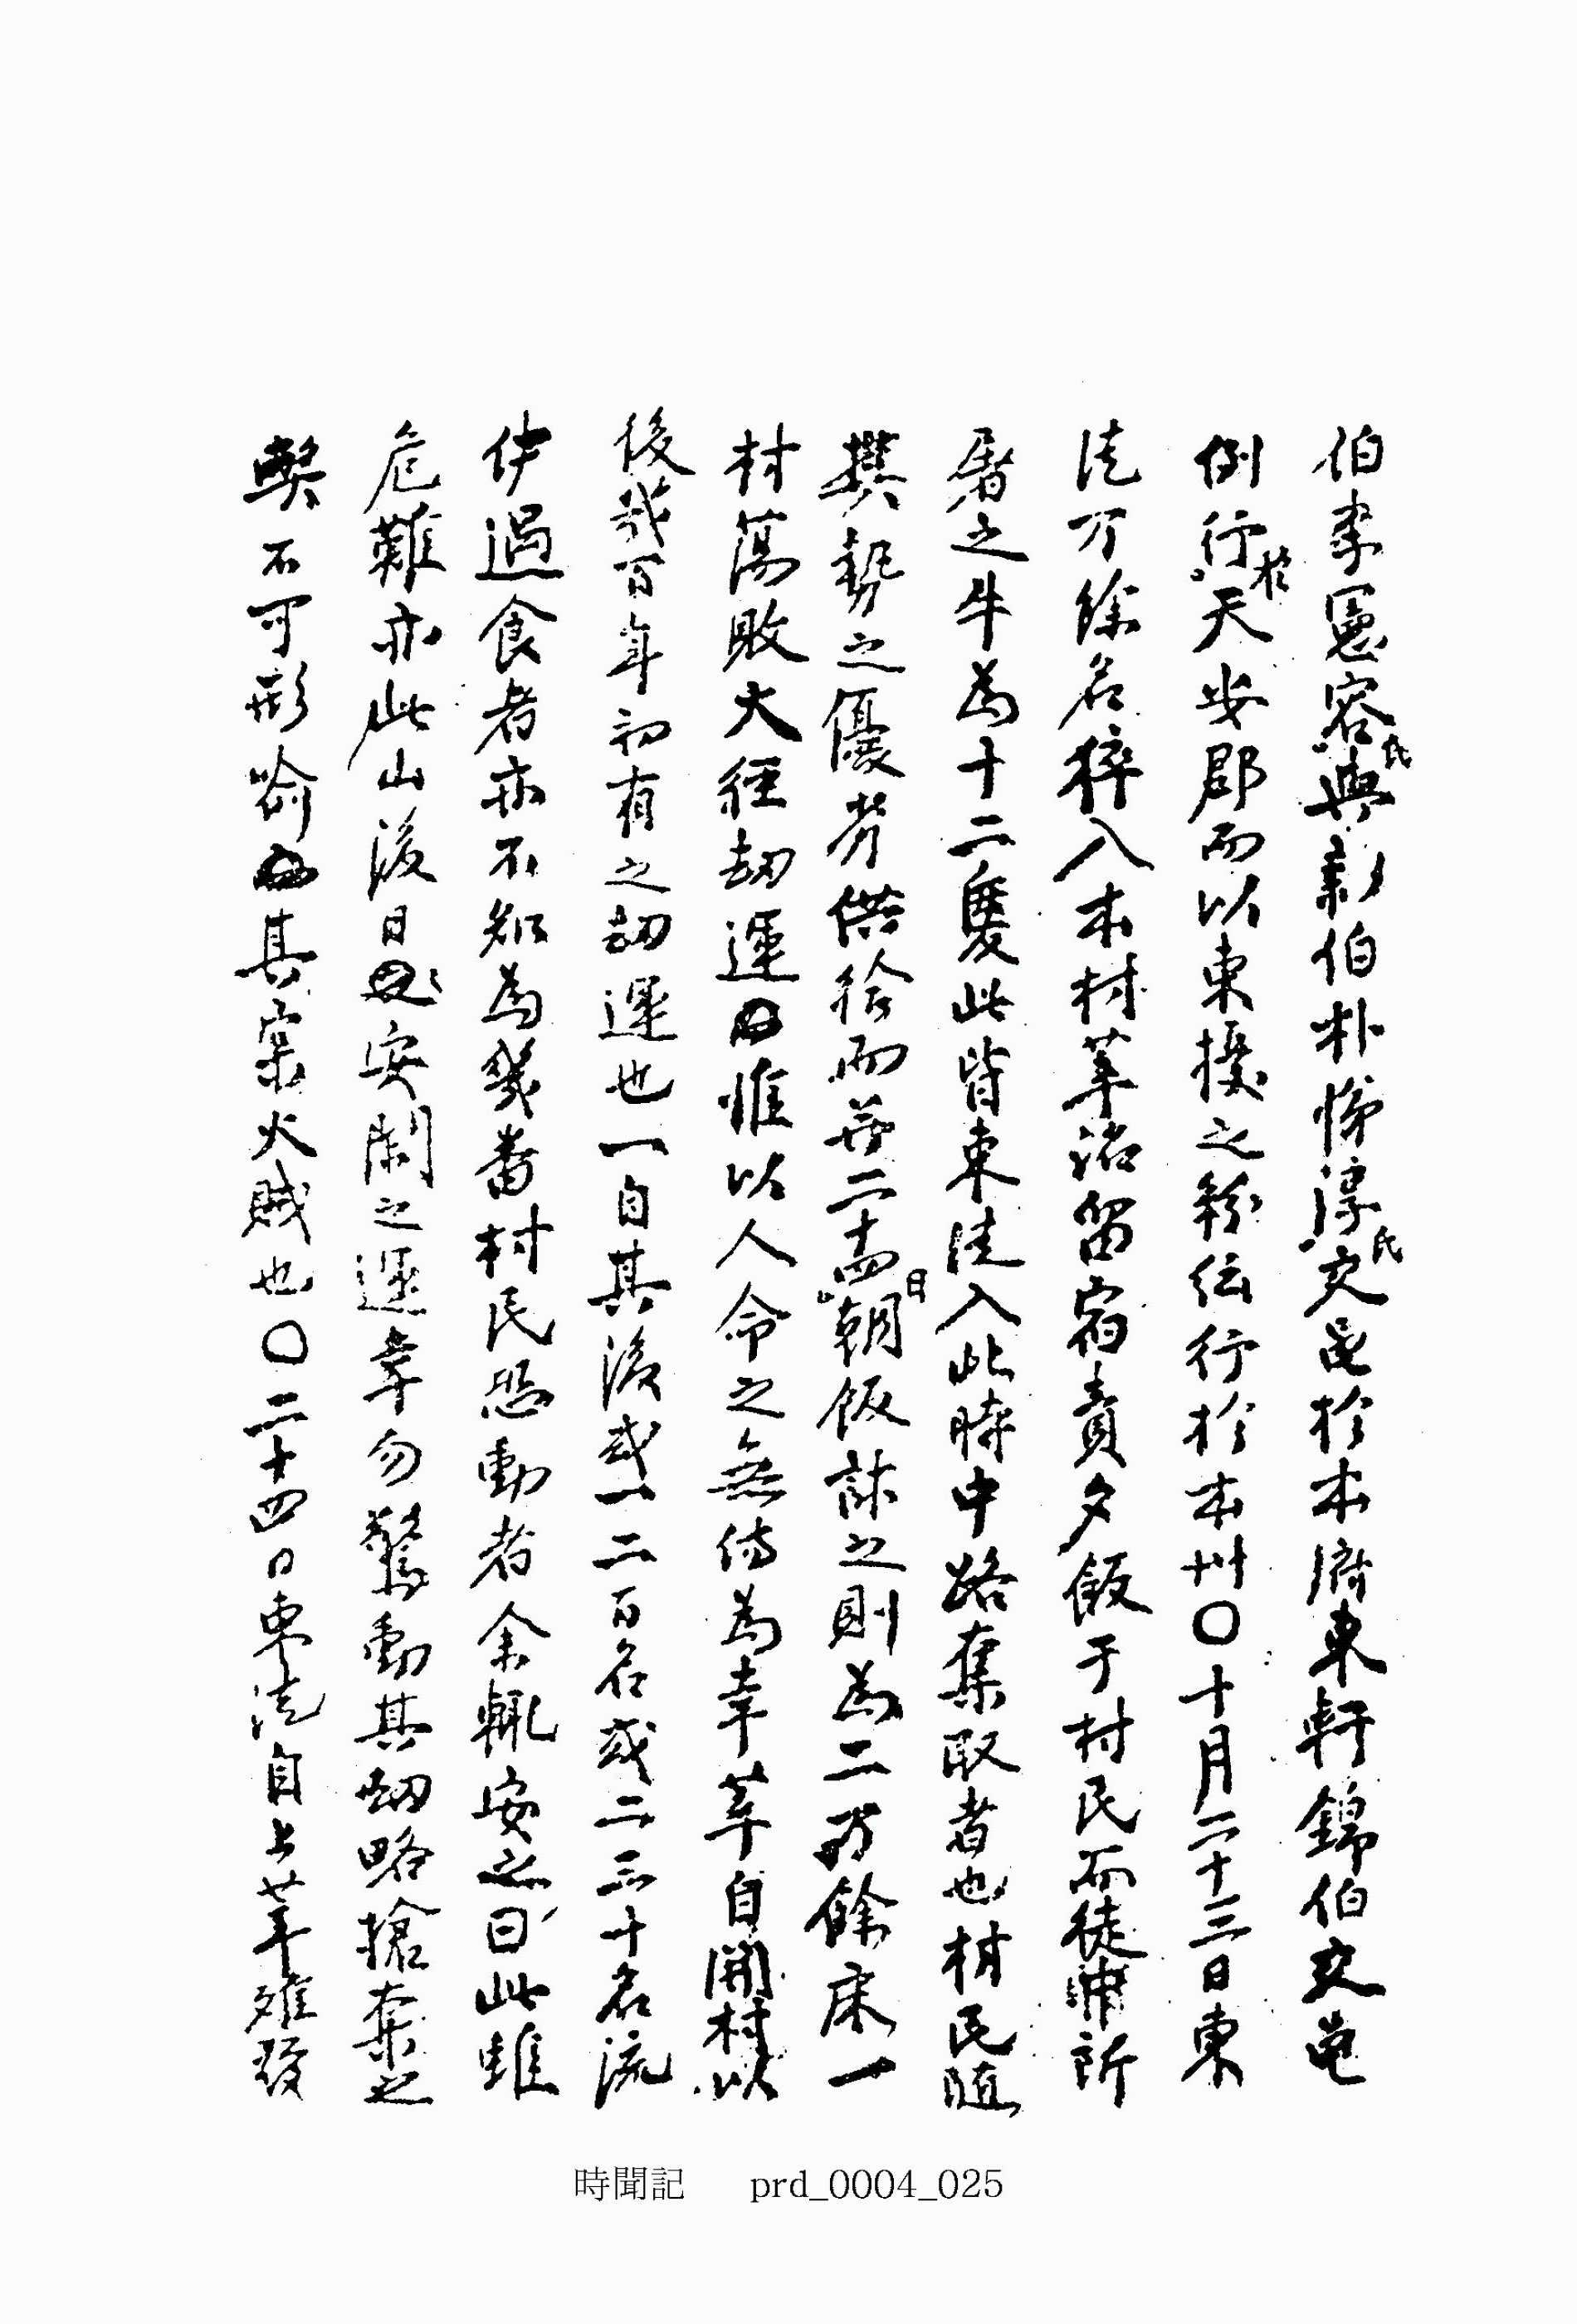 伯李憲容氏與新伯朴悌淳氏交邑於本府東軒錦伯交邑
例行於天安郡而以東擾之紛紜行於本州〇十月二十三日東
徒万餘名猝入本村莘沼留宿責夕飯于村民而徒輩所
屠之牛為十二隻此皆東徒入此時中路奪取者也村民隨
其勢之優劣供給而并二十四日朝飯計之則為二万餘床一
村蕩敗大經劫運惟以人命之無傷為幸莘自開村以
後幾百年初有之劫運也一自其後或一二百名或二三十名流
伊過食者亦不知為幾番村民恐動者余輒安之曰此雖
危難亦此山後日安閑之運幸勿驚動其劫略搶奪之
弊不可形喻其寔火賊也〇二十四日東徒自上莘雖發